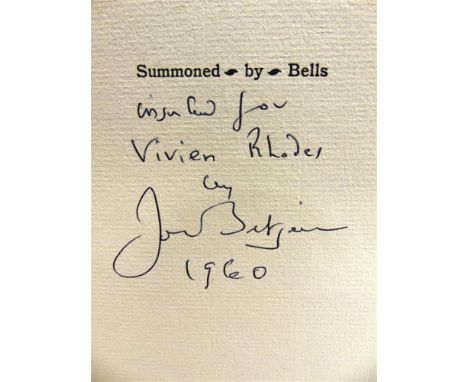 Summoned by Bells
inscribed for
Vivien Rhodes
by
John Betjeman
1960